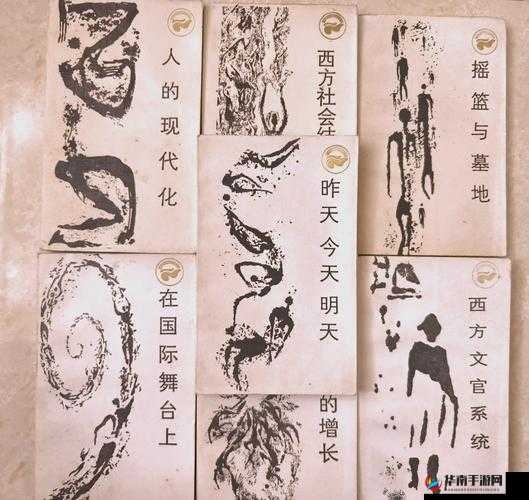 人的现代化
西方社会结
摇篮与墓地
昨天 今天 明天
在国际舞台上
的增长
西方文官系统
华南手游网